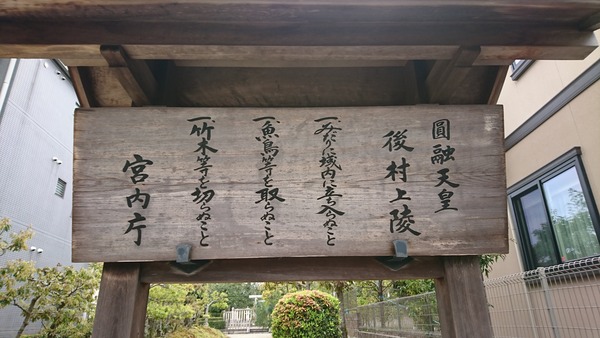 圓融天皇
後村上陵
一、みだりに域内に立ち入らぬこと
一、魚鳥等を取らぬこと
一、竹木等を切らぬこと
宮内庁